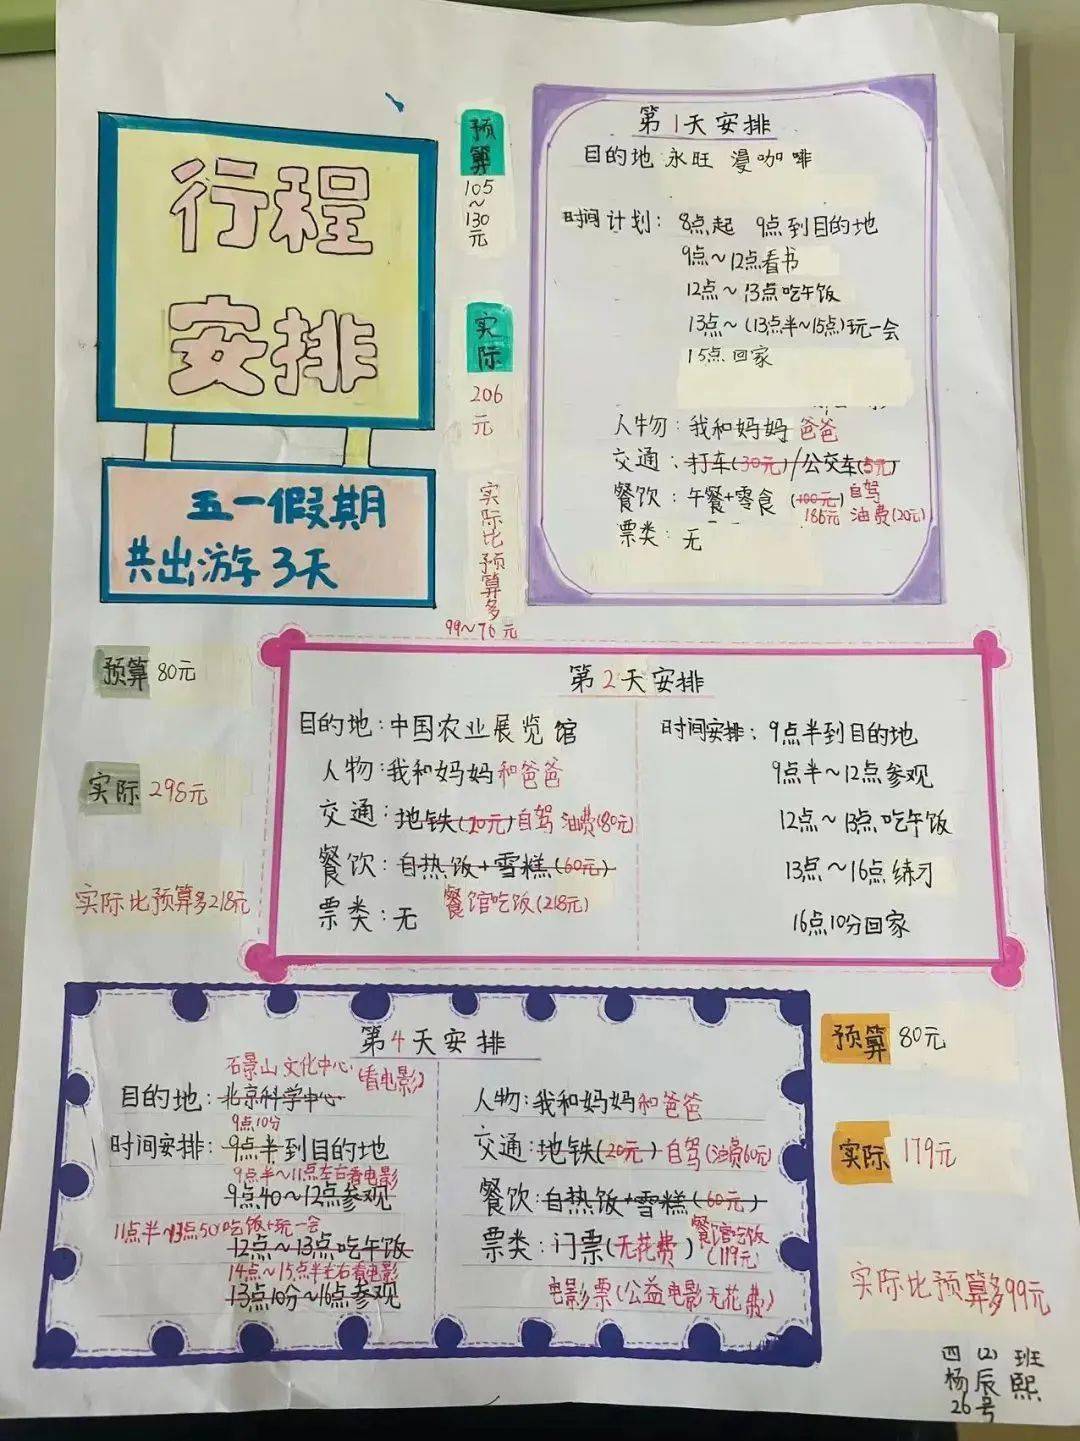 行程
安排
五一假期
共出游3天
预算
105
~
130
元
实
际
206
元
实际比预算多
99~76元
第1天安排
目的地:永旺 漫咖啡
时间计划: 8点起 9点到目的地
9点~12点看书
12点~13点吃午饭
13点~(13点半~15点)玩一会
15点回家
人物:我和妈妈 爸爸
交通:打车(30元)/公交车(5元)
自驾
餐饮:午餐+零食 (100元)
186元 油费(20元)
票类:无
预算 80元
实际 298元
实际比预算多218元
第2天安排
目的地:中国农业展览馆
人物:我和妈妈和爸爸
交通:地铁(20元)自驾 油费(80元)
餐饮:自热饭+雪糕(60元)
餐馆吃饭(218元)
票类:无
时间安排:9点半到目的地
9点半~12点参观
12点~13点吃午饭
13点~16点练习
16点10分回家
第4天安排
石景山文化中心(看电影)
目的地:北京科学中心
9点10分
时间安排:9点半到目的地
9点半~11点左右看电影
9点40~12点参观
11点半~13点50吃饭+玩一会
12点~13点吃午饭
14点~15点半左右看电影
13点10分~16点参观
人物:我和妈妈和爸爸
交通:地铁(20元)自驾(油费60元)
餐饮:自热饭+雪糕(60元)
餐馆吃饭
票类:门票(无花费) (119元)
电影票(公益电影无花费)
预算 80元
实际 179元
实际比预算多99元
四(2)班
杨辰熙
26号